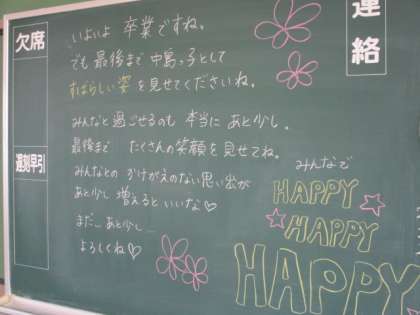 欠席
遅刻早引
連絡
いよいよ 卒業ですね。
でも 最後まで 中島っ子として
すばらしい姿 を見せてくださいね。
みんなと過ごせるのも 本当に あと少し。
最後まで たくさんの笑顔を見せてね。
みんなとの かけがえのない思い出が
あと少し 増えると いいな♡
まだ…あと少し…
よろしくね♡
みんなで
HAPPY
HAPPY
HAPPY